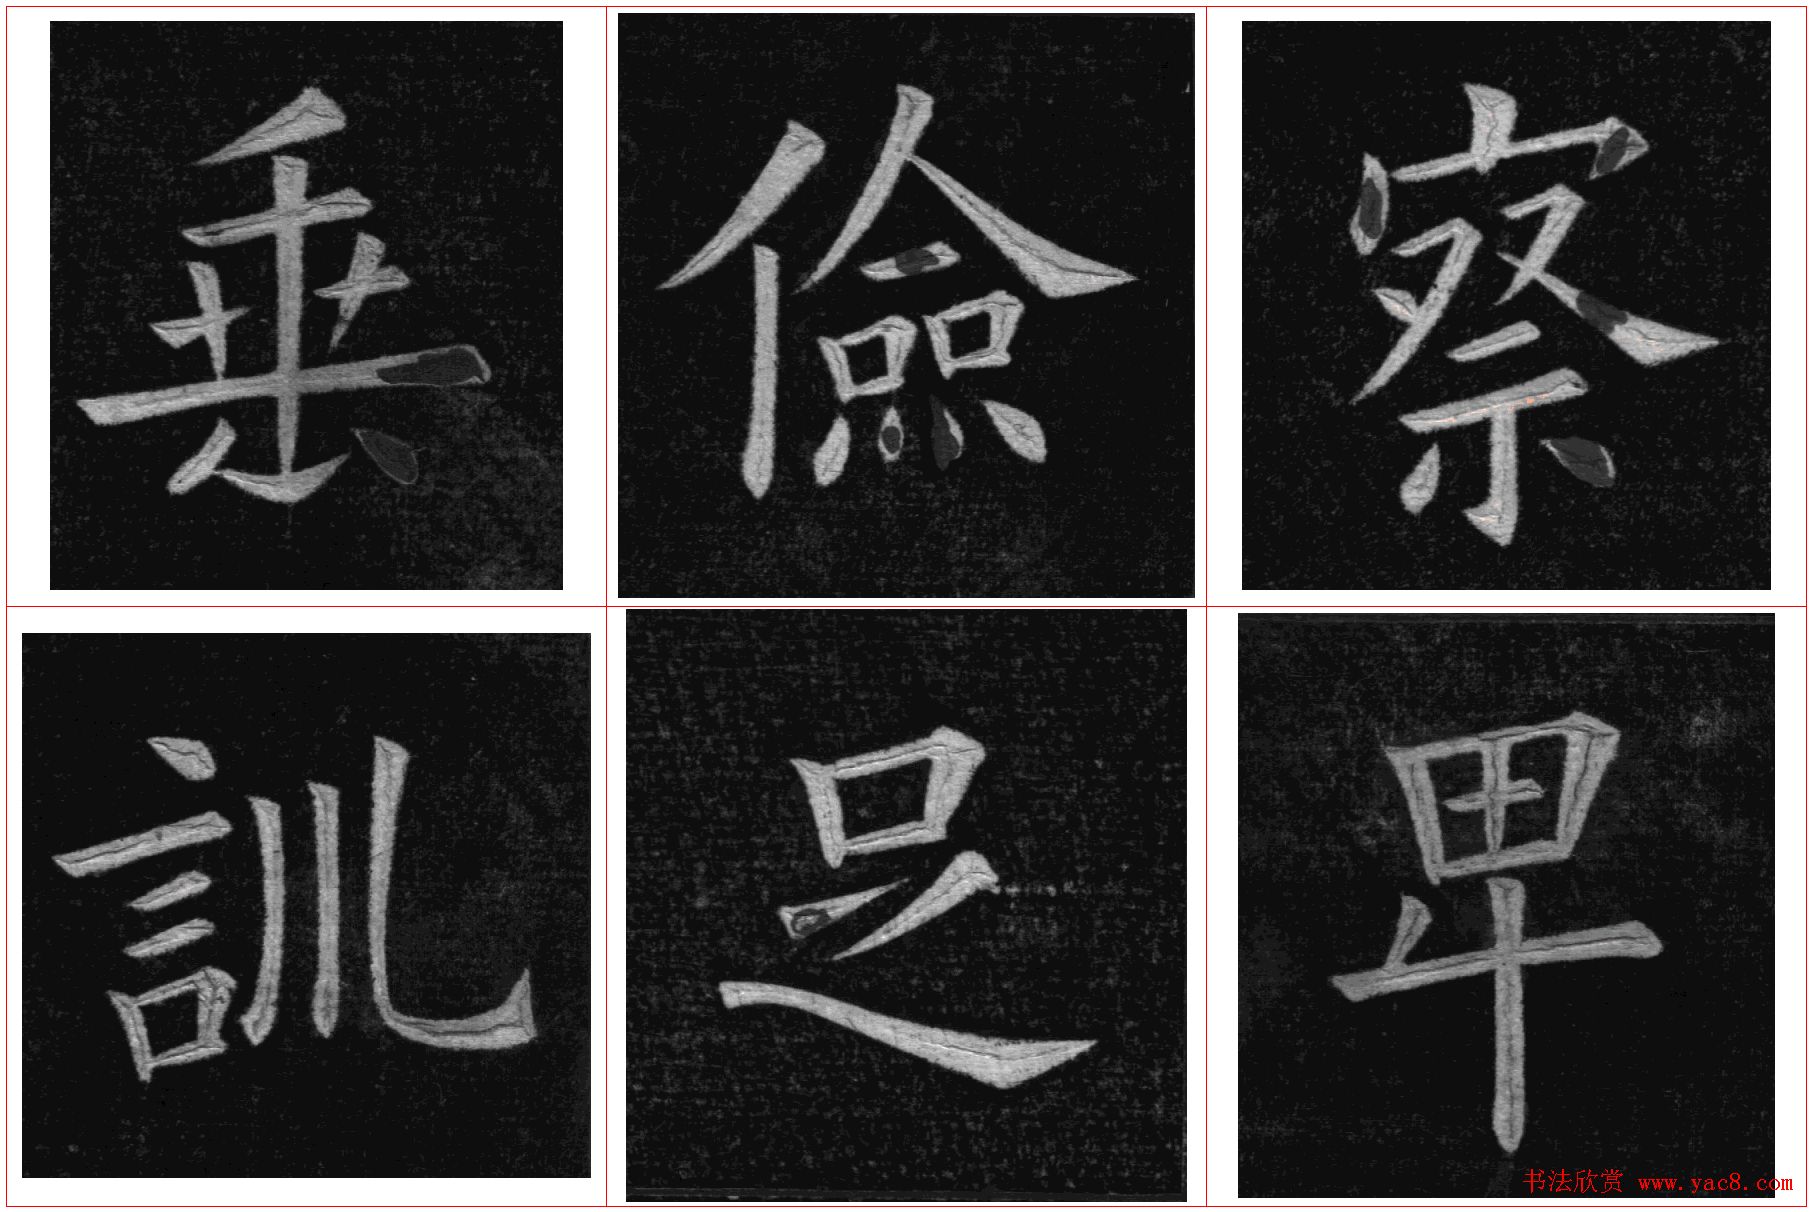 察卑
儉足
垂訓
书法欣赏 www.yac8.com